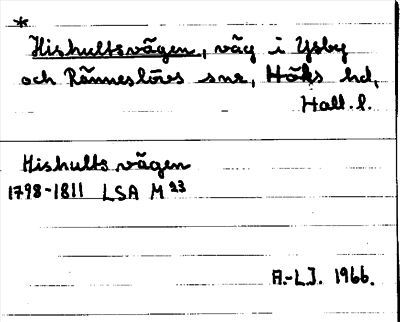 *
Hishultsvägen, väg i Ysby
och Ränneslövs snr, Höks hd,
Hall. l.
Hishults vägen
1798-1811 LSA M 23
A.-L.J. 1966.